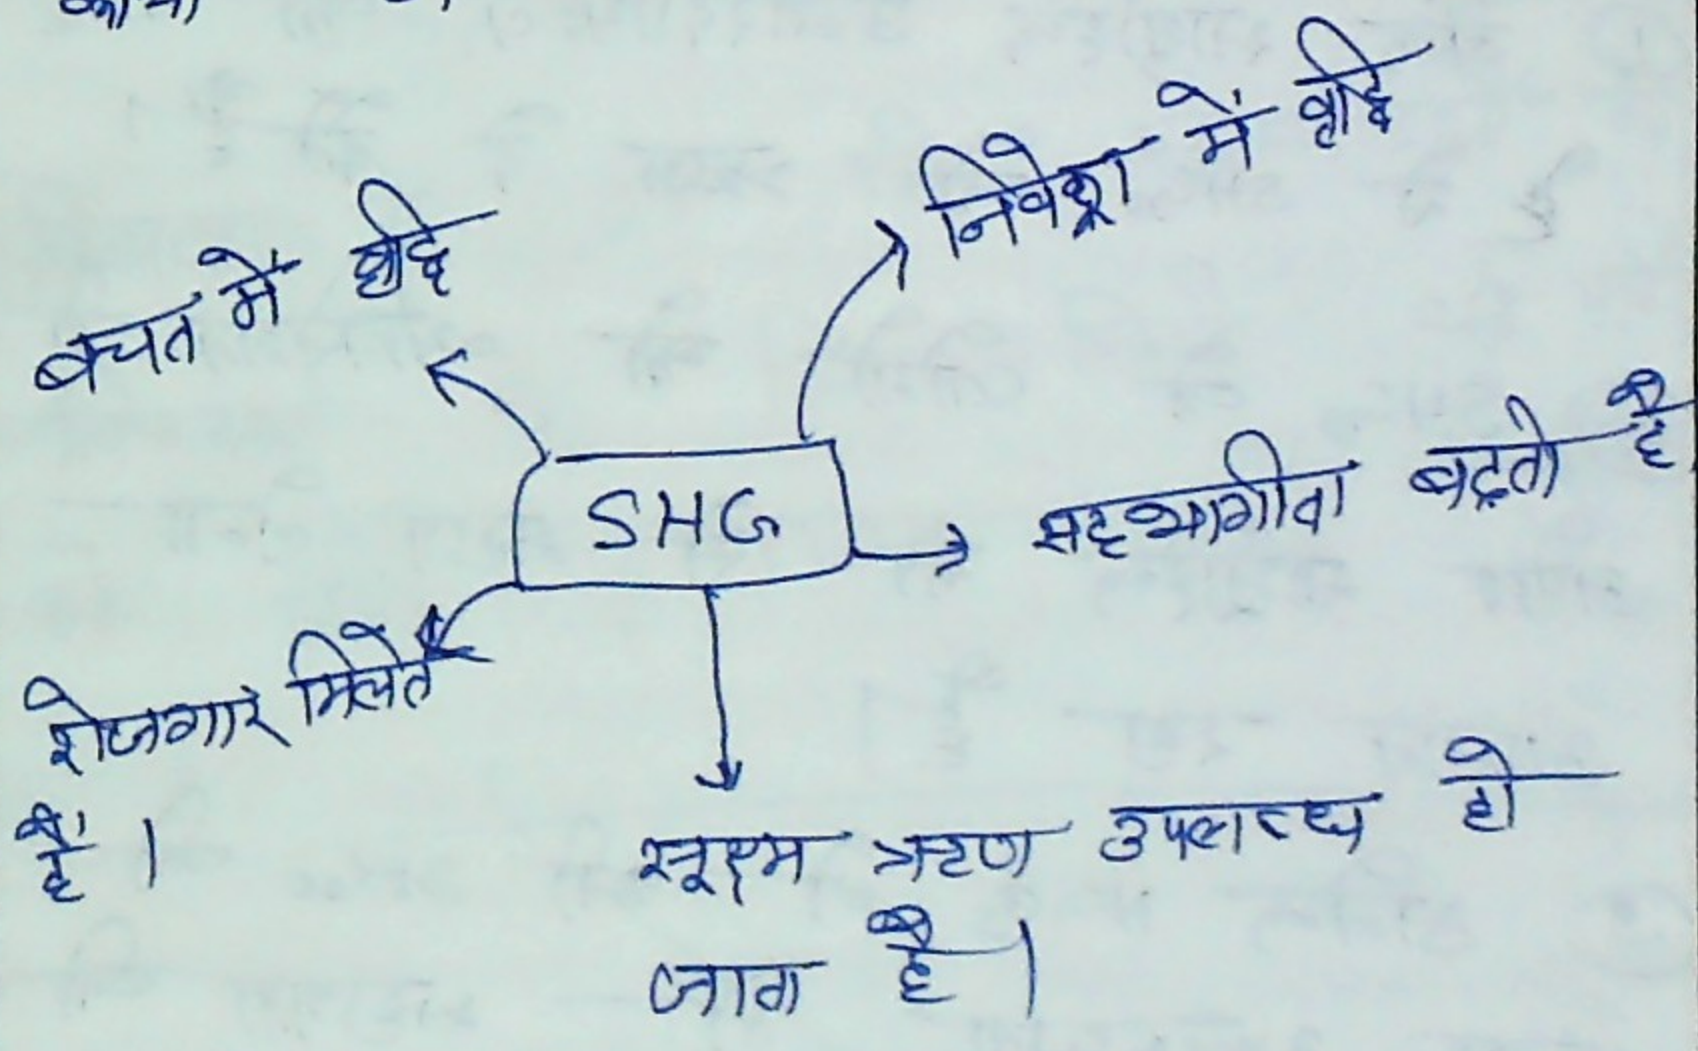 निवेश में वृद्धि
बचत में वृद्धि
SHG
सहभागीता बढ़ती है
रोजगार मिलते
हैं।
सूक्ष्म ऋण उपलब्ध हो
जाता है।